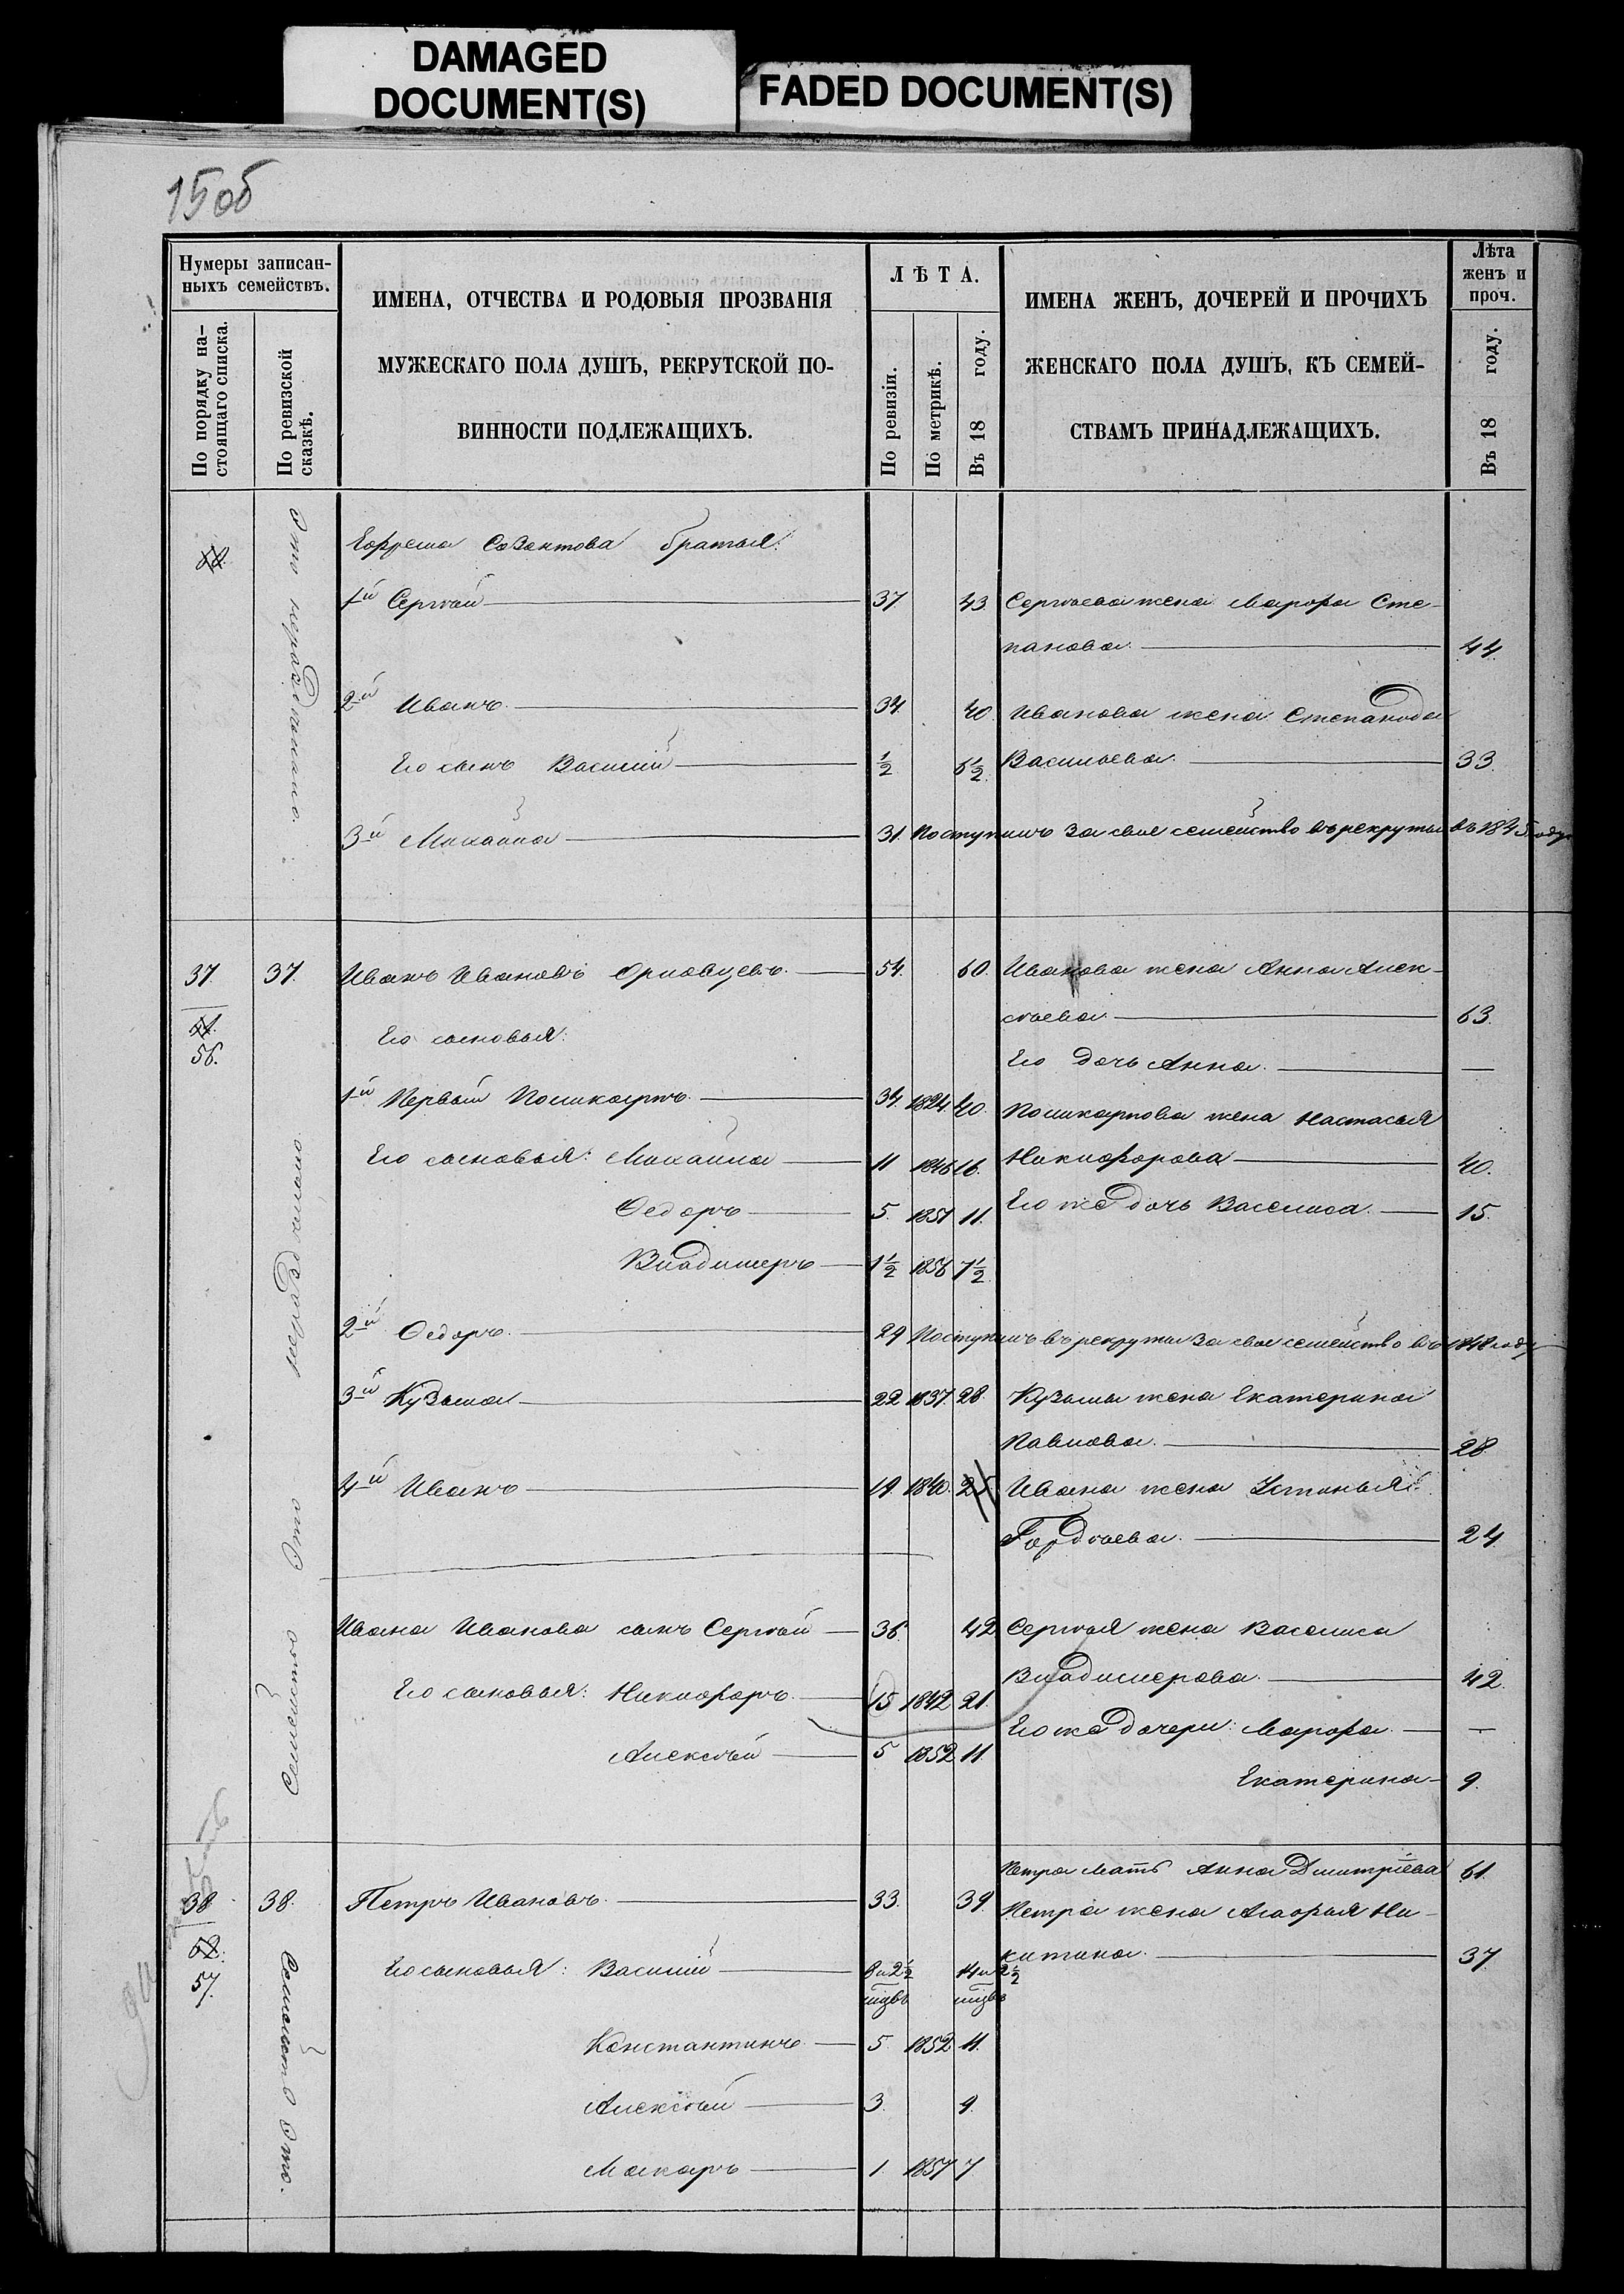 DAMAGED
DOCUMENT(S)
FADED DOCUMENT(S)
15 об
Нумеры записан-
ныхъ семействъ.
По порядку на-
стоящаго списка.
По ревизской
сказкѣ.
ИМЕНА, ОТЧЕСТВА И РОДОВЫЯ ПРОЗВАНІЯ
МУЖЕСКАГО ПОЛА ДУШЪ, РЕКРУТСКОЙ ПО-
ВИННОСТИ ПОДЛЕЖАЩИХЪ.
ЛѢТА.
По ревизіи.
По метрикѣ.
Въ 18 году.
ИМЕНА ЖЕНЪ, ДОЧЕРЕЙ И ПРОЧИХЪ
ЖЕНСКАГО ПОЛА ДУШЪ, КЪ СЕМЕЙ-
СТВАМЪ ПРИНАДЛЕЖАЩИХЪ.
Лѣта
женъ и
проч.
Въ 18 году.
Ефрема Созонтова братья:
1й Сергѣй 37 43 Сергѣева жена Марфа Сте-
панова. 44.
2й Иванъ. 34. 40. Иванова жена Степанида
Его сынъ Василій ½ 6½. Васильева. 33.
3й Михаила 31. Поступилъ за свое семейство въ рекруты въ 1845 году
37. 37. Иванъ Ивановъ Орловцевъ. 54. 60. Иванова жена Анна Алек-
сѣева 63.
56. Его сыновья:
Его дочь Анна. —
1й Первый Поликарпъ. 34. 1824. 40. Поликарпова жена Настасья
Его сыновья: Михаила 11 1846 16. Никифорова 40.
Ѳедоръ 5. 1851 11. Его же дочь Василиса. 15.
Владимеръ 1½ 1856 7½
2й Ѳедоръ. 29 Поступилъ въ рекруты за свое семейство въ 1848 году
3й Кузьма 22 1837. 28. Кузьмы жена Екатерина
Павлова. 28.
4й Иванъ 19. 1840. 25. Ивана жена Устинья
Гордѣева. 24
Ивана Иванова сынъ Сергѣй 36. 42 Сергѣя жена Василиса
Владимерова. 42.
Его сыновья: Никифоръ. 15 1842 21.
Его же дочери: Марфа. —
Алексѣй 5 1852 11.
Екатерина 9.
Семейство это
Петра мать Анна Дмитріева 61.
38 38. Петръ Ивановъ. 33. 39. Петра жена Агафья Ни-
китина. 37.
57. Его сыновья: Василій 8 и 2½ мцвъ 14 и 2½ мцвъ
Константинъ 5 1852 11.
Алексѣй 3. 9.
Макаръ 1. 1857 7
Семейство это.